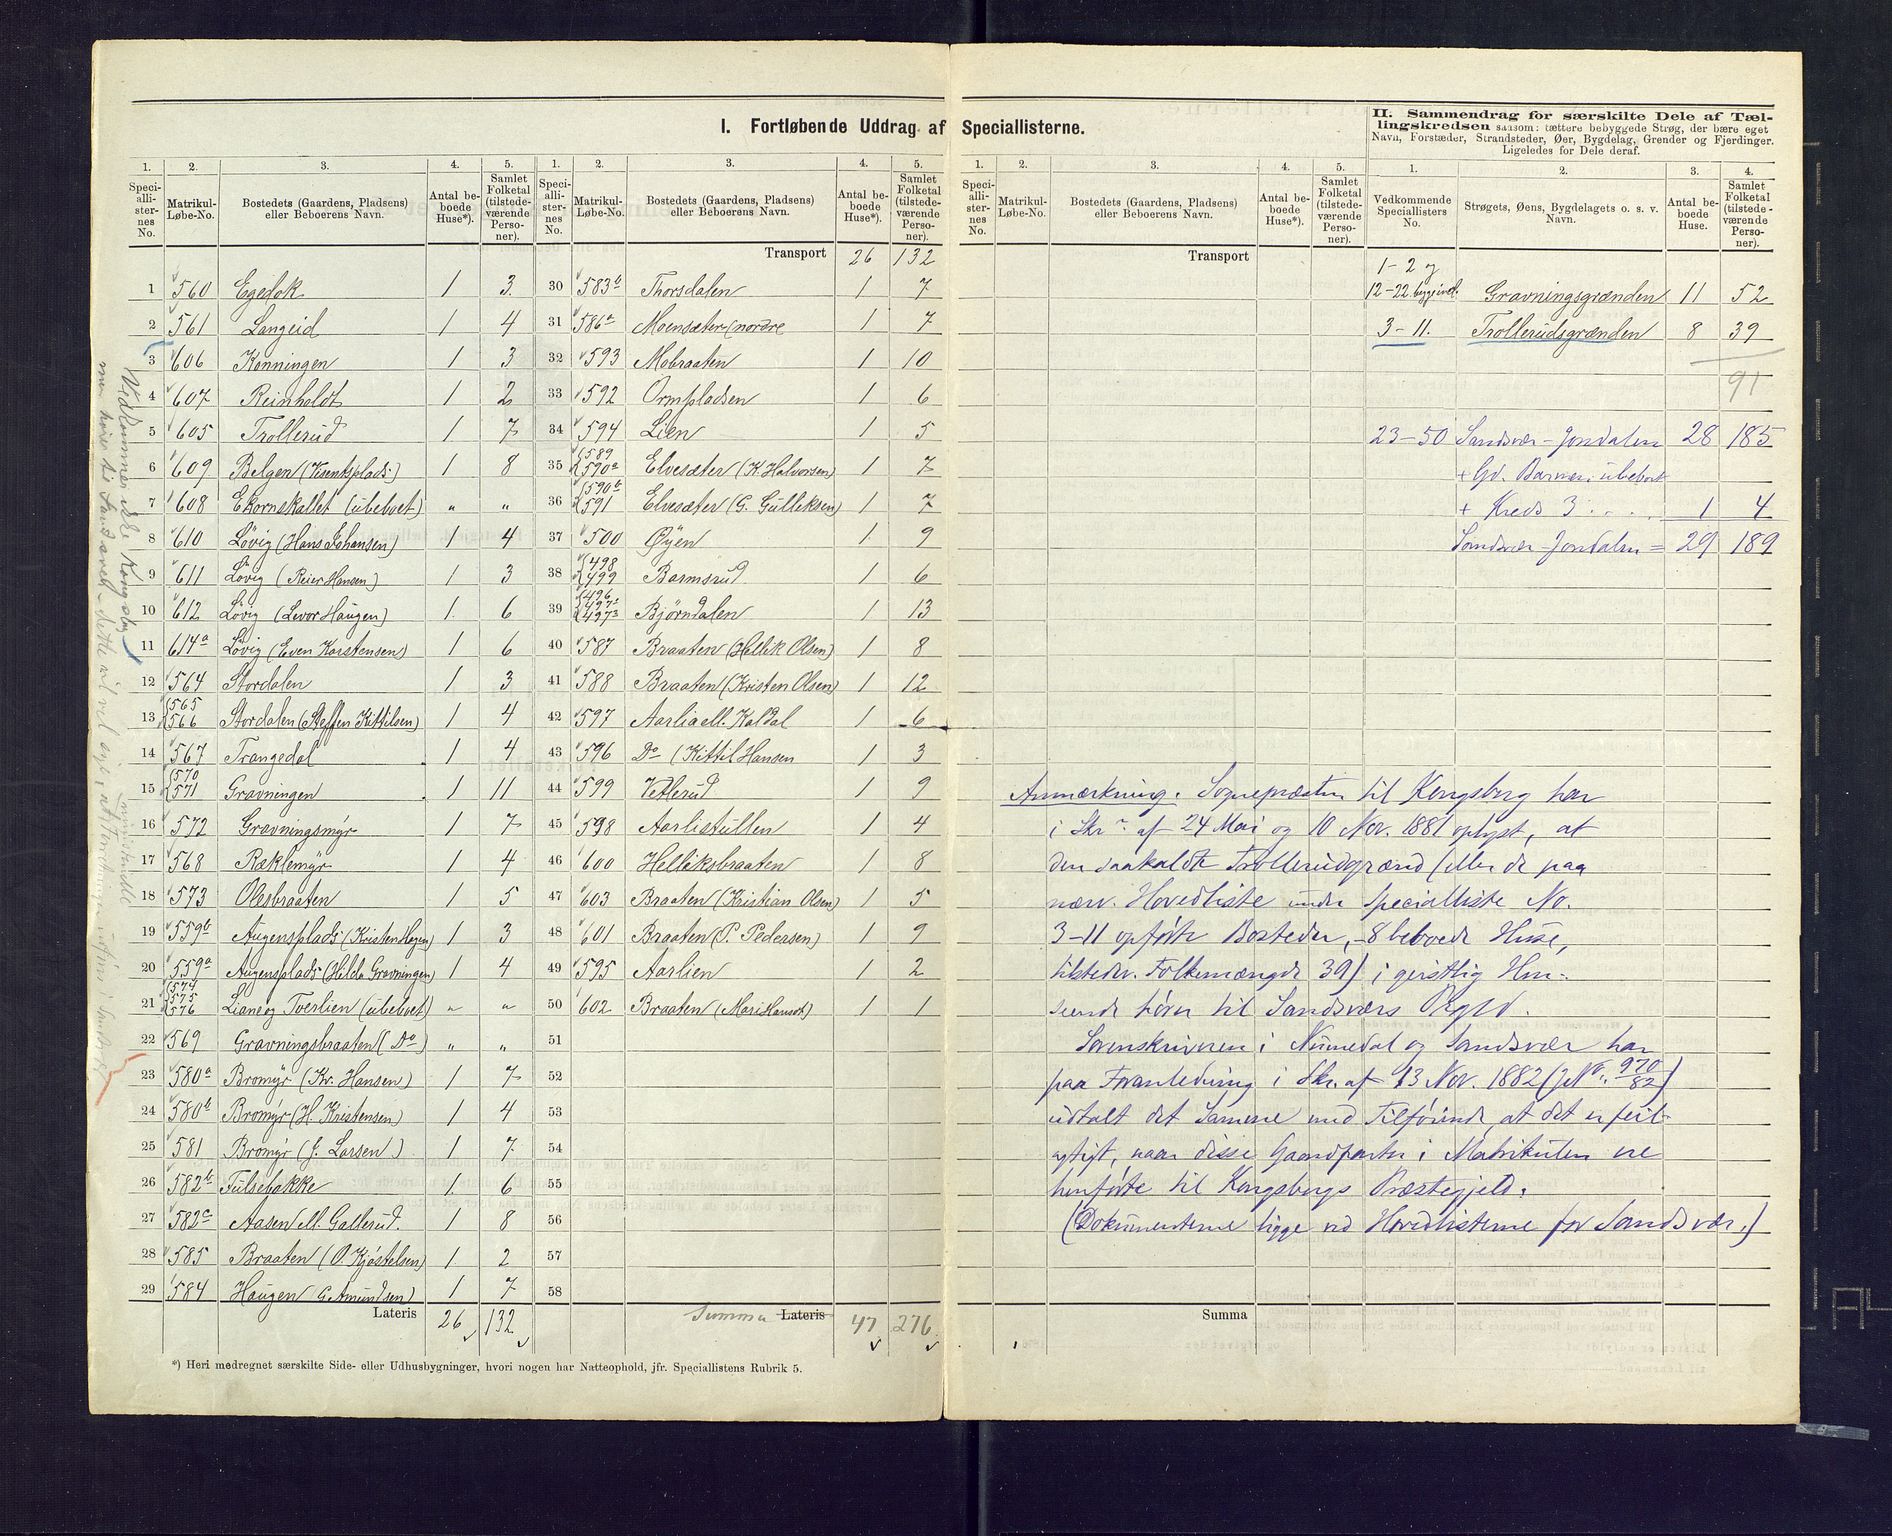 I. Fortløbende Uddrag af Speciallisterne.
II. Sammendrag for særskilte Dele af Tællingskredsen saasom: tættere bebyggede Strøg, der bære eget
Navn, Forstæder, Strandsteder, Øer, Bygdelag, Grender og Fjerdinger.
Ligeledes for Dele deraf.
1. 2. 3. 4. 5. 1. 2. 3. 4. 5.
Speciallisternes No. Matrikul-Løbe-No. Bostedets (Gaardens, Pladsens) eller Beboerens Navn. Antal beboede Huse*). Samlet Folketal (tilstedeværende Personer).
Speciallisternes No. Matrikul-Løbe-No. Bostedets (Gaardens, Pladsens) eller Beboerens Navn. Antal beboede Huse*). Samlet Folketal (tilstedeværende Personer).
Transport 26 132
1 560 Egedok 1 3
2 561 Langeid 1 4
3 606 Konningen 1 3
4 607 Reinholdt 1 2
5 605 Trollerud 1 7
6 609 Belgen (Ksentsplads) 1 8
7 608 Ekornskallet (ubeboet) " "
8 610 Løvig (Hans Johansen) 1 4
9 611 Løvig (Reier Hansen) 1 3
10 612 Løvig (Levor Haugen) 1 6
11 614a Løvig (Even Karstensen) 1 6
12 564 Stordalen 1 3
13 565 566 Stordalen (Steffen Kittilsen) 1 4
14 567 Trangedal 1 4
15 570 571 Gravningen 1 11
16 572 Gravningsmyr 1 7
17 568 Ræklemyr 1 4
18 573 Olesbraaten 1 5
19 559b Augensplads (Kristen Hagen) 1 3
20 559a Augensplads (Hilda Gravningen) 1 4
21 574 575 576 Lian og Tverlien (ubeboet) " "
22 569 Gravningsbraaten (Do) " "
23 580a Bromyr (Kr. Hansen) 1 7
24 580b Bromyr (H. Kristensen) 1 4
25 581 Bromyr (J. Larsen) 1 7
26 582b Fulsebakke 1 6
27 582c Aasen ell. Gallerud 1 8
28 585 Braaten (O. Kjøstelsen) 1 2
29 584 Haugen G. Amundsen) 1 7
Lateris 26 132
30 583b Thorsdalen 1 7
31 586a Moensæter (nordre 1 7
32 593 Mobraaten 1 10
33 592 Ormpladsen 1 6
34 594 Lien 1 5
35 589 590a Elvesæter (K. Halvorsen) 1 7
36 590b 591 Elvesæter (G. Gulliksen) 1 7
37 500 Øyen 1 9
38 498 499 Barmsrud 1 6
39 496 497 497 Bjørndalen 1 13
40 587 Braaten (Hellik Olsen) 1 8
41 588 Braaten (Kristen Olsen) 1 12
42 597 Aarlia ell. Kaldal 1 6
43 596 Do (Kittil Hansen 1 3
44 599 Vetlerud 1 9
45 598 Aarlistullen 1 4
46 600 Helliksbraaten 1 8
47 603 Braaten (Kristian Olsen) 1 5
48 601 Braaten (P. Pedersen) 1 9
49 595 Aarlien 1 2
50 602 Braaten (Mari Hansdt) 1 1
51
52
53
54
55
56
57
58
Summa Lateris 47 276
*) Heri medregnet særskilte Side- eller Udhusbygninger, hvori nogen har Natteophold, jfr. Speciallistens Rubrik 5.
Vedkommer ikke Kongsberg
1. 2. 3. 4. 5.
Speciallisternes No. Matrikul-Løbe-No. Bostedets (Gaardens, Pladsens) eller Beboerens Navn. Antal beboede Huse*). Samlet Folketal (tilstedeværende Personer).
Transport
1. 2. 3. 4.
Vedkommende Speciallisters No. Strøgets, Øens, Bygdelagets o. s. v. Navn. Antal beboede Huse. Samlet Folketal (tilstedeværende Personer).
1-2 og
12-22 Gravningsgrænden 11 52
3-11. Trollerudsgrænden 8 39
91
23-50 Sandsvær-Jondalen 28 185
+ Kreds 3 . . . . 1 4
Sandsvær-Jondalen = 29 189
Anmærkning. Sognepræsten til Kongsberg har
i Skr. af 24 Mai og 10 Nov. 1881 oplyst, at
den saakaldte Trollerudgrænd (eller de paa
nærv. Hovedliste under Specialliste No.
3-11 opførte Bosteder, - 8 beboede Huse,
tilstedev. Folkemængde 39) i geistlig Hen-
seende hører til Sandsværs Prgjld.
Sorenskriveren i Numedal og Sandsvær har
paa Foranledning i Skr. af 13 Nov. 1882 (JNo. 970/82)
udtalt det Samme med Tilføiende, at det er feil-
agtigt, naar disse Gaardparter i Matrikulen ere
henførte til Kongsbergs Præstegjeld.
(Dokumenterne ligge ved Hovedlisterne for Sandsvær.)
Summa